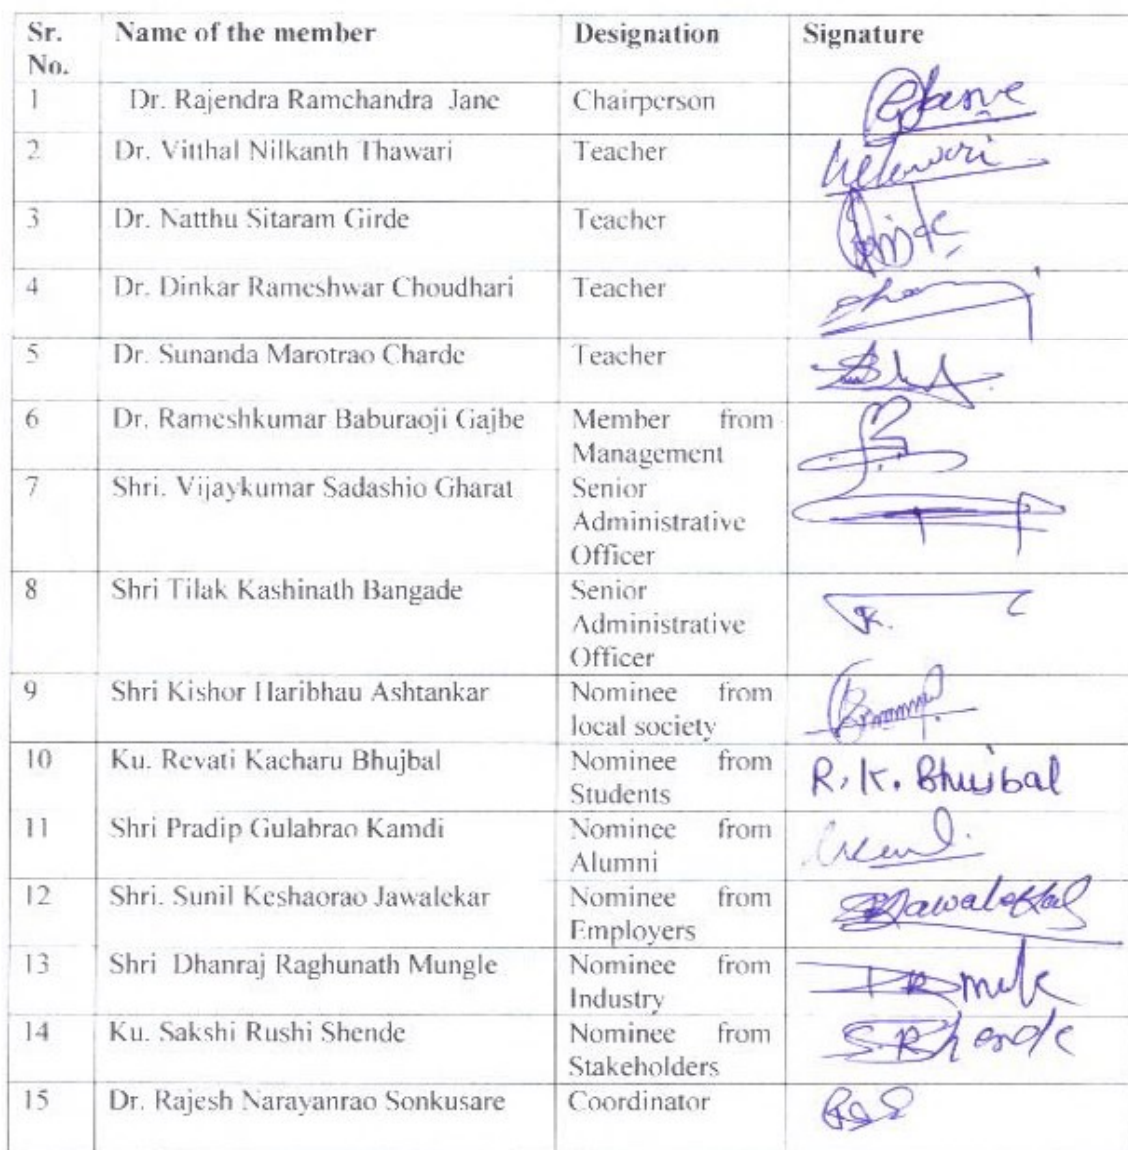 Sr. Name of the member Designation Signature
No.
1 Dr. Rajendra Ramchandra Jane Chairperson
2 Dr. Vitthal Nilkanth Thawari Teacher
3 Dr. Natthu Sitaram Girde Teacher
4 Dr. Dinkar Rameshwar Choudhari Teacher
5 Dr. Sunanda Marotrao Charde Teacher
6 Dr. Rameshkumar Baburaoji Gajbe Member from
Management
7 Shri. Vijaykumar Sadashio Gharat Senior
Administrative
Officer
8 Shri Tilak Kashinath Bangade Senior
Administrative
Officer
9 Shri Kishor Haribhau Ashtankar Nominee from
local society
10 Ku. Revati Kacharu Bhujbal Nominee from R. K. Bhujbal
Students
11 Shri Pradip Gulabrao Kamdi Nominee from
Alumni
12 Shri. Sunil Keshaorao Jawalekar Nominee from
Employers
13 Shri Dhanraj Raghunath Mungle Nominee from
Industry
14 Ku. Sakshi Rushi Shende Nominee from S.R.Shende
Stakeholders
15 Dr. Rajesh Narayanrao Sonkusare Coordinator